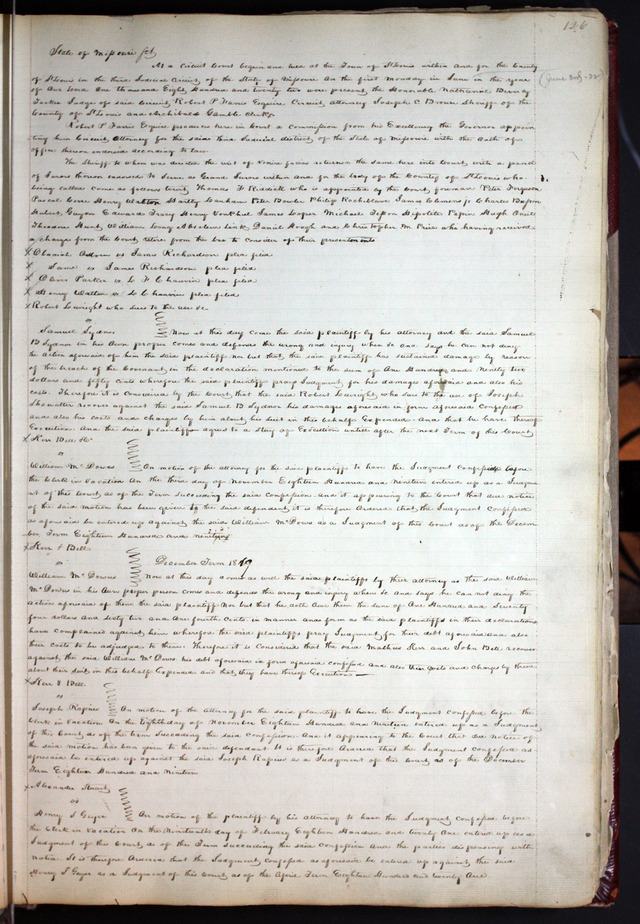 126
State of Missouri sct
At a Circuit Court begun and held at the Town of St Louis within and for the County
of St Louis in the third Judicial Circuit of the State of Missouri on the first Monday in June in the year
of our Lord One thousand Eight Hundred and twenty two were present the Honorable Nathaniel Beverly
Tucker Judge of said Circuit, Robert P Farris Esquire Circuit Attorney Joseph C Brown Sheriff of the
County of St Louis and Archibald Gamble Clerk
Robert P Farris Esquire produces here in Court a Commission from his Excellency the Governor appoin
ting him Circuit Attorney for the said third Judicial district of the State of Missouri with the Oath of
office thereon indorsed according to law
The Sheriff to whom was directed the writ of Venire facias returned the same here into Court with a panel
of Jurors thereon indorsed to serve as Grand Jurors within and for the body of the County of St Louis who
being called come as follows towit, Thomas F Riddick who is appointed by the Court foreman Peter Ferguson
Pascal Cerre Henry Walton Hartly Lanham Peter Bowler Philip Rocheblave James Clemens jr Charles
Hubert Guyon Edward Tracy Henry James Loper Michael Tesson Hipolite Papin Hugh
Theodore Hunt William Long Absolem Link Daniel Hough and Christopher M Price who having received
a charge from the Court retire from the bar to consider of their presentments
X Obaniah vs James Richardson pleas filed
X Same vs James Richardson pleas filed
X Oliver Parker vs L F Chauvin pleas filed
X Henry Walton vs L Chauvin pleas filed
X Robert Lowright who sues to the use &c
vs
Samuel Sydnor
Now at this day come the said plaintiff by his attorney and the said Samuel
B Sydnor in his own proper comes and defends the wrong and injury when &c and says he can not deny
the action aforesaid of him the said plaintiff nor but that the said plaintiff has sustained damage by reason
of the breach of the Covenant in the declaration mentioned to the sum of One Hundred and Ninety two
dollars and fifty cents wherefore the said plaintiff prays Judgment for his damages aforesaid and also his
costs. Therefore it is considered by the Court that the said Robert who sues to the use of Joseph
recover against the said Samuel B Sydnor his damages aforesaid in form aforesaid Confessed
and also his costs and charges by him about his suit in this behalf Expended and that he have thereof
Execution. And the said plaintiff agrees to a stay of Execution untill after the next Term of this Court
X Kerr Bell &c
vs
William Mc Dows
On motion of the attorney for the said plaintiffs to have the Judgment Confessed before
the Clerk in Vacation On the third day of November Eighteen Hundred and Nineteen entered up as a Judgmen
nt of this Court as of the Term Succeeding the said Confession And it appearing to the Court that due notice
of the said motion has been given to the said defendant it is therefore Ordered that the Judgment Confessed
as aforesaid be entered up against the said William Mc Dows as a Judgment of this Court as of the Decem
ber Term Eighteen Hundred and Nineteen
X Kerr & Bell
December Term 1819
vs
William Mc Dows
Now at this day comes as well the said plaintiffs by their attorney as the said William
Mc Dows in his own proper person comes and defends the wrong and injury when &c and says he can not deny the
action aforesaid of them the said plaintiffs Nor but that he doth owe them the sum of One Hundred and Seventy
four dollars and sixty two and One fourth Cents in manner and form as the said plaintiffs in their declaration
have complained against him wherefore the said plaintiffs pray Judgment for their debt aforesaid and also
their costs to be adjudged to them. Therefore it is considered that the said Mathew Kerr and John Bell recover
against the said William Mc Dows his debt aforesaid in form aforesaid Confessed and also their costs and charges by them
about their suit in this behalf Expended and that they have thereof Execution
X Kerr & Bell
vs
Joseph Rapieu
On motion of the Attorney for the said plaintiff to have the Judgment Confessed before the
Clerk in Vacation On the Eighth day of November Eighteen Hundred and Nineteen entered up as a Judgment
of this Court as of the term Succeeding the said Confession. And it appearing to the Court that due Notice of
the said motion has been given to the said defendant. It is therefore Ordered that the Judgment Confessed as
aforesaid be entered up against the said Joseph Rapieu as a Judgment of this Court as of the December
Term Eighteen Hundred and Nineteen
X Alexander Stuart
vs
Henry S Geyer
On motion of the plaintiff by his attorney to have the Judgment Confessed before
the Clerk in Vacation On the Nineteenth day of February Eighteen Hundred and twenty One entered up as a
Judgment of this Court as of the Term Succeeding the said Confession And the parties dispensing with
notice It is therefore Ordered that the Judgment Confessed as aforesaid be entered up against the said
Henry S Geyer as a Judgment of this Court as of the April Term Eighteen Hundred and twenty One